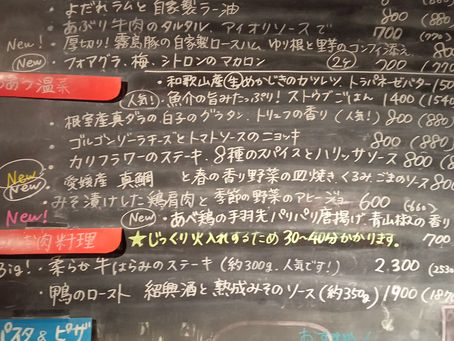 ・よだれラムと自家製ラー油 800 (880)
・あぶり牛肉のタルタル、アイオリソースで 700 (770)
New! ・厚切り!霧島豚の自家製ロースハム ゆり根と里芋のコンフィ添え 800 (880)
New ・フォアグラ、梅、シトロンのマカロン 2ケ 700 (770)
温菜 ・和歌山産 生 めかじきのカツレツ、トラパネーゼバター 150
・人気! 魚介の旨みたっぷり! ストウブごはん 1400 (1540
・根室産真ダラの白子のグラタン、トリュフの香り (人気!) 800 (880)
・ゴルゴンゾーラチーズとトマトソースのニョッキ 800 (880)
・カリフラワーのステーキ、8種のスパイスとハリッサソース 800 (88
New New ・愛媛産 真鯛 と春の香り野菜の皿焼き くるみごまのソース 800 (8
・みそ漬けした鶏肩肉と季節の野菜のアヒージョ 600 (660)
New! New ・あべ鶏の手羽先パリパリ唐揚げ、青山椒の香り 700
お肉料理 ★じっくり火入れするため 30〜40分かかります。
Big! ・柔らか牛はらみのステーキ (約300g、人気です!) 2.300 (2530
・鴨のロースト 紹興酒と熟成みそのソース (約350g) 1900 (1870
パスタ & ピザ